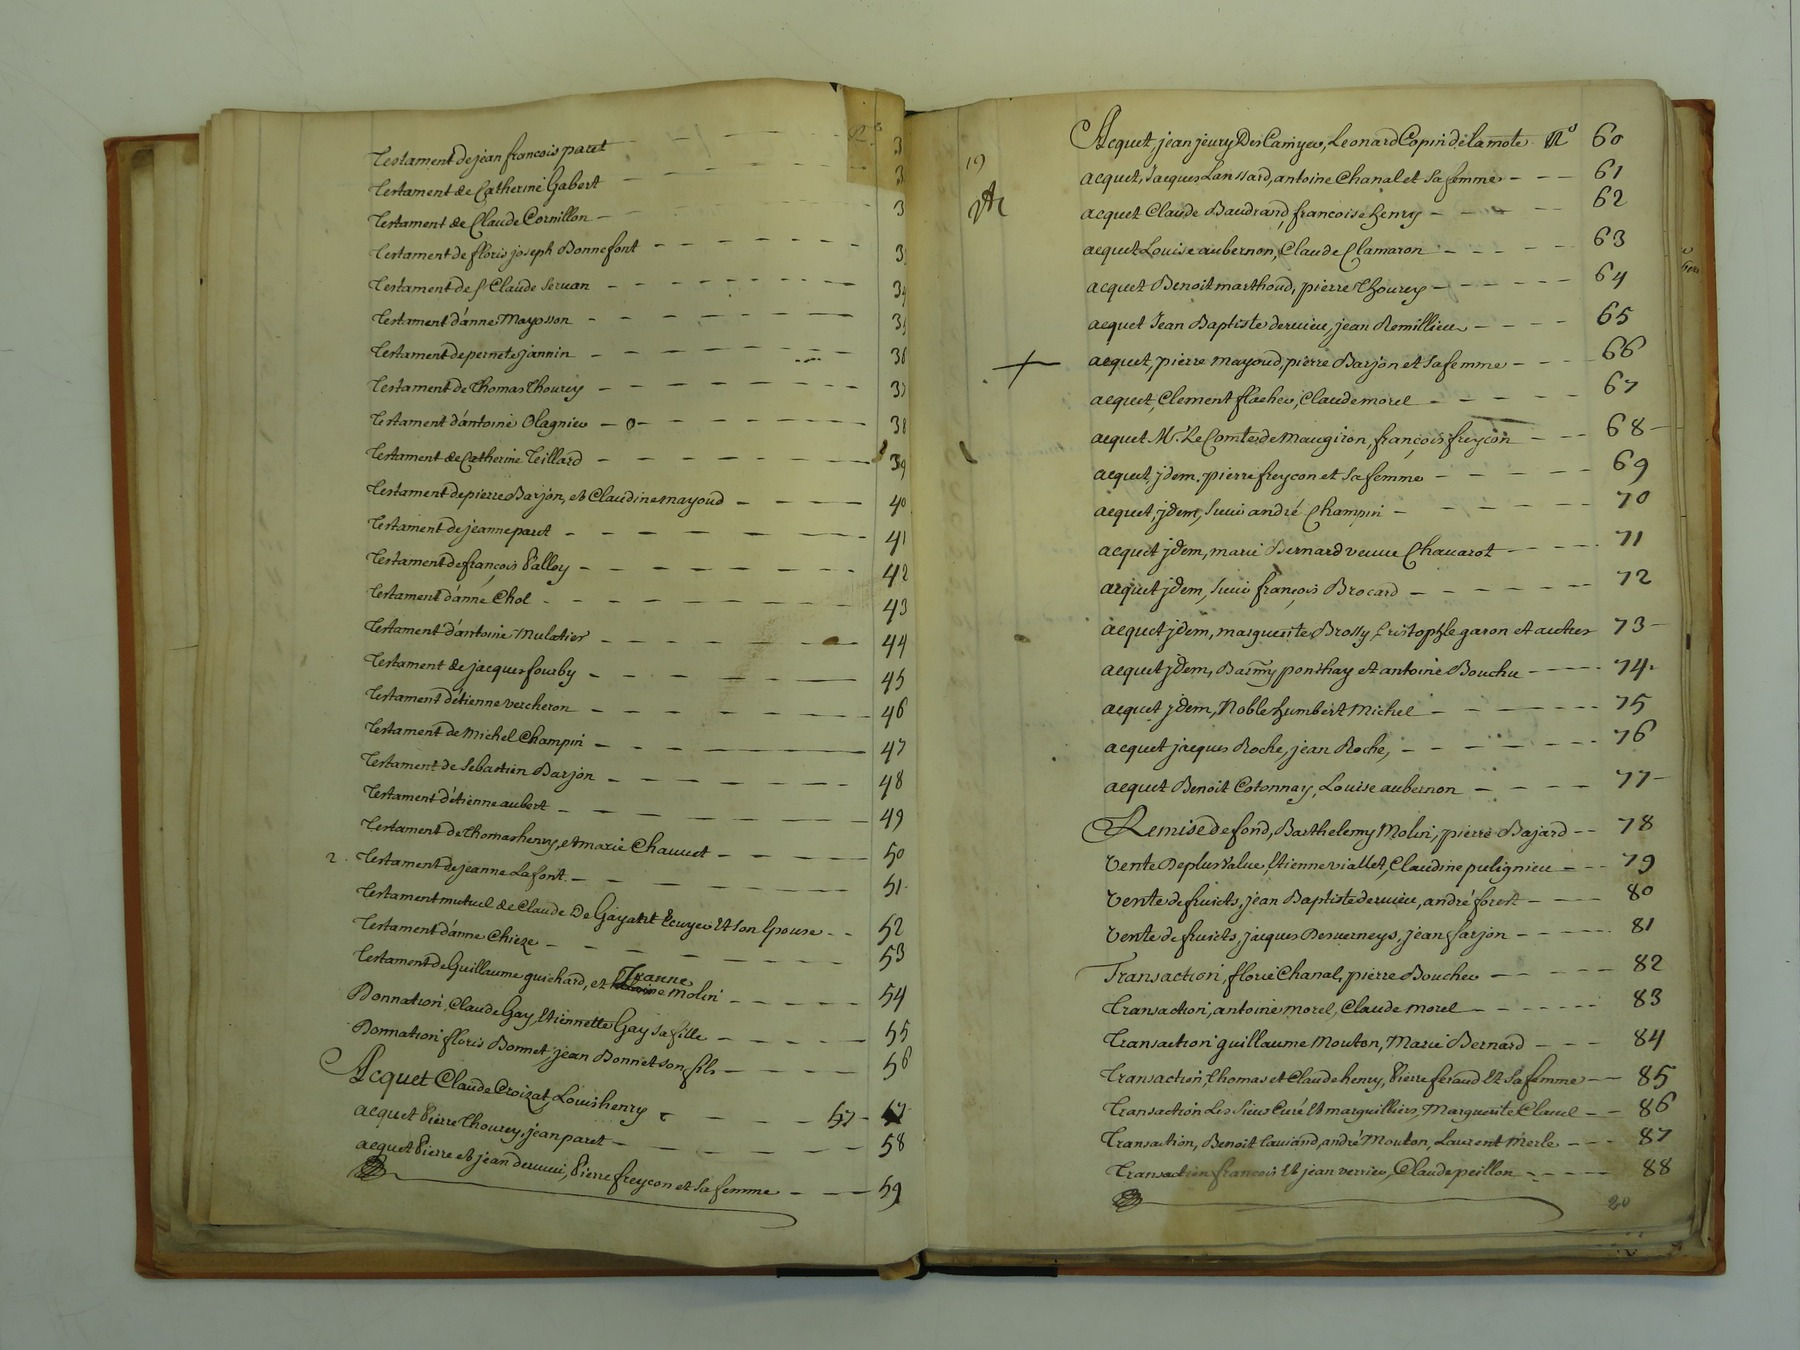 N.º
Testament de jean francois paret 3
Testament de Catherine Gabert 3
Testament de Claude Cornillon 3
Testament de floris joseph Bonnefont 3
Testament de s.r Claude Seruan 34
Testament d'anne Mayosson 3
Testament de pernete jannin 36
Testament de Thomas Thourey 37
Testament d'antoine Olagnier 38
Testament de Catherine Teillard 39
Testament de pierre Barjon, et Claudine mayoud 40
Testament de jeanne paret 41
Testament de françois Valloy 42
Testament d'anne Chol 43
Testament d'antoine Mulatier 44
Testament de jacques fourby 45
Testament d'étienne vercheron 46
Testament de Michel Champin 47
Testament de Sebastien Barjon 48
Testament d'étienne aubert 49
Testament de Thomas henry, et marie Chauuet 50
2. Testament de jeanne Lafont 51
Testament mutuel de Claude De Gayant Ecuyer Et son Epouse 52
Testament d'anne Chieze 53
Testament de Guillaume guichard, et Jeanne Molin 54
Donnation, Claude Gay, Etiennette Gay sa fille 55
Donnation floris Bonnet, jean Bonnet son fils 56
Acquet Claude Croizat, Louis henry 57
acquet Pierre Thourey, jean paret 58
acquet Pierre et jean deruieu, Pierre freycon et sa femme 59
19
Acquet, jean jeury Des Camyer, Leonard Copin de la mote N.º 60
acquet, jacques Lanssard, antoine Chanal et sa femme 61
acquet Claude Baudrand, francoise henry 62
acquet Louise aubernon, Claude Clamaron 63
acquet Benoit marthoud, pierre Thourey 64
acquet Jean Baptiste deruieu, jean Remillieu 65
acquet, pierre mayoud, pierre Barjon et sa femme 66
acquet, Clement flacher, Claude morel 67
acquet M.r Le Comte de Maugiron, françois freycon 68
acquet, jdem, pierre freycon et sa femme 69
acquet, jdem, sieur andré Champin 70
acquet jdem, marie Bernard veuue Chauarot 71
acquet jdem, sieur françois Brocard 72
acquet jdem, marguerite Brossy, Cristophle garon et autres 73
acquet jdem, Barmy ponthay et antoine Bouchu 74
acquet jdem, Noble humbert Michel 75
acquet jacques Roche, jean Roche, 76
acquet Benoit Cotonnay, Louise aubernon 77
Remise de fond, Barthelemy Molin, pierre Bajard 78
Vente De plus Value, Etienne viallet, Claudine pulignieu 79
Vente de fruicts, jean Baptiste deruieu, andré forest 80
Vente de fruicts, jacques Desuerneys, jean farjon 81
Transaction florie Chanal, pierre Boucher 82
Transaction, antoine morel, Claude morel 83
Transaction guillaume Mouton, Marie Bernard 84
Transaction, Thomas et Claude henry, Pierre feraud Et sa femme 85
Transaction Les sieurs Curé Et marguilliers, Marguerite Clauel 86
Transaction, Benoit andré Mouton, Laurent Merle 87
Transaction francois Et jean verrier, Claude peillon 88
20